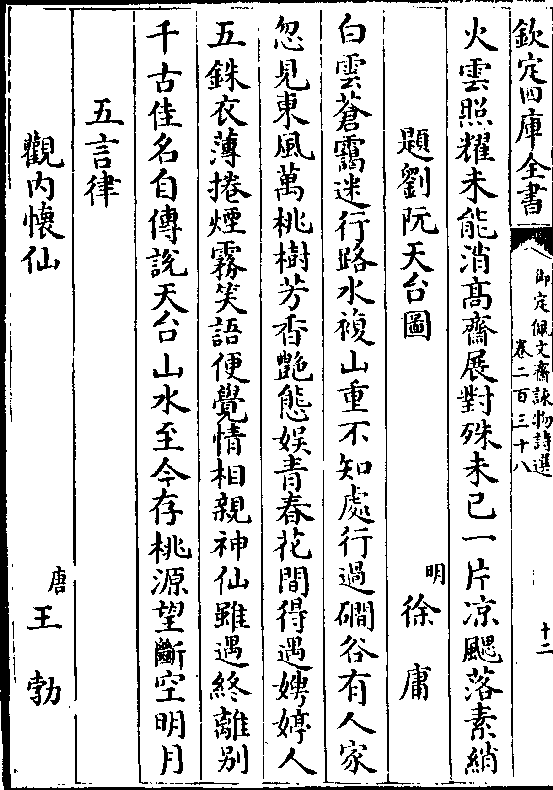 欽定四庫全書
御定佩文齋詠物詩選
卷二百三十八
十二
火雲照耀未能消高齋展對殊未已一片凉颸落素綃
題劉阮天台圖
明徐庸
白雲蒼靄迷行路水複山重不知處行過磵谷有人家
忽見東風萬桃樹芳香艶態娱青春花間得遇娉婷人
五銖衣薄捲煙霧笑語便覺情相親神仙雖遇終離别
千古佳名自傳說天台山水至今存桃源望斷空明月
五言律
觀内懷仙
唐王勃